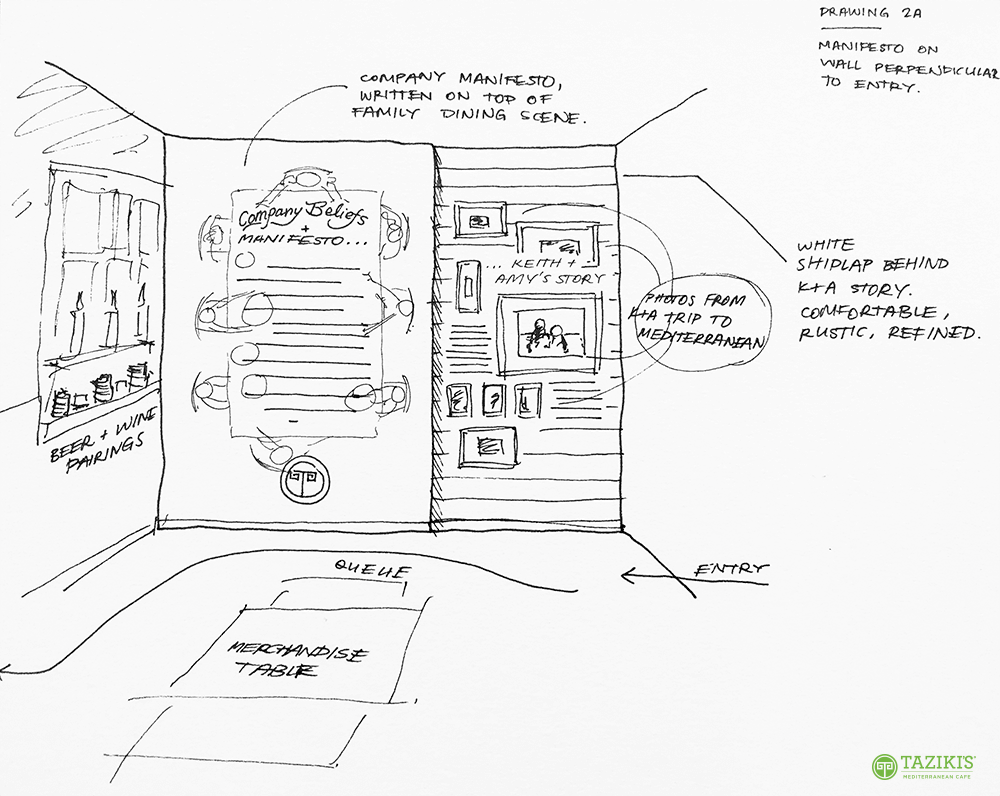 DRAWING 2A
MANIFESTO ON
WALL PERPENDICULAR
TO ENTRY.
COMPANY MANIFESTO,
WRITTEN ON TOP OF
FAMILY DINING SCENE.
Company Beliefs
+
MANIFESTO...
... KEITH +
AMY'S STORY
PHOTOS FROM
K+A TRIP TO
MEDITERRANEAN
WHITE
SHIPLAP BEHIND
K+A STORY.
COMFORTABLE,
RUSTIC, REFINED.
BEER + WINE
PAIRINGS
QUEUE
ENTRY
MERCHANDISE
TABLE
TAZIKIS
MEDITERRANEAN CAFE